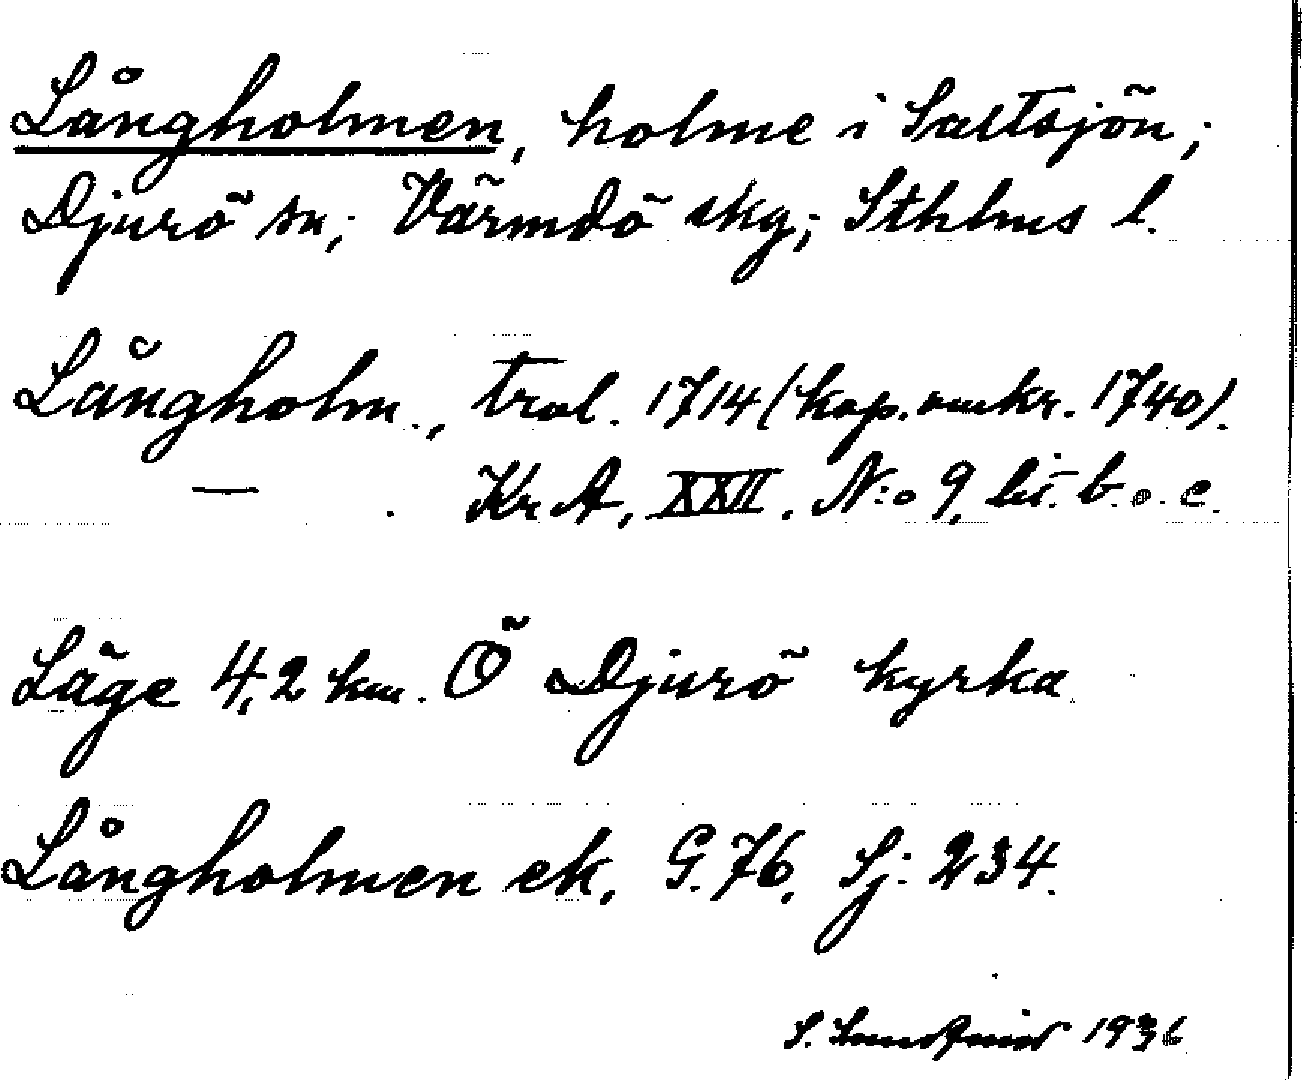 Långholmen, holme i Saltsjön;
Djurö sn; Värmdö skg; Sthlms l.
Långholm., trol. 1714 (kop. omkr. 1740).
— . Kr A, XXII. N:o 9, lit. b. o. c.
Läge 4,2 km. Ö Djurö kyrka
Långholmen ek. G. 76. Sj: 234.
S. 1936